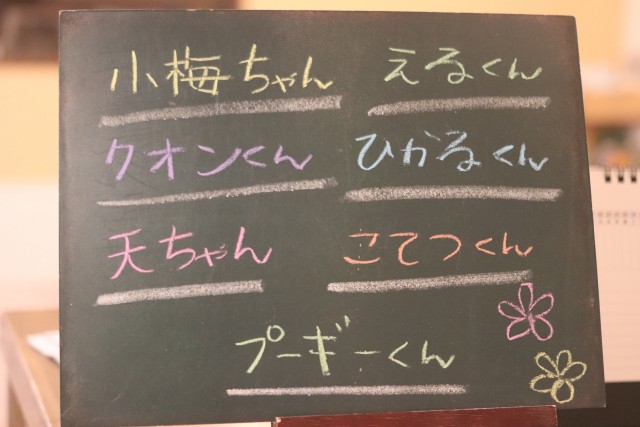 小梅ちゃん えるくん
クオンくん ひかるくん
天ちゃん こてつくん
プーギーくん